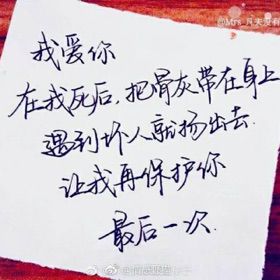 @Mrs_凡夫没有
我爱你
在我死后,把骨灰带在身上
遇到坏人就扬出去.
让我再保护你
最后一次.